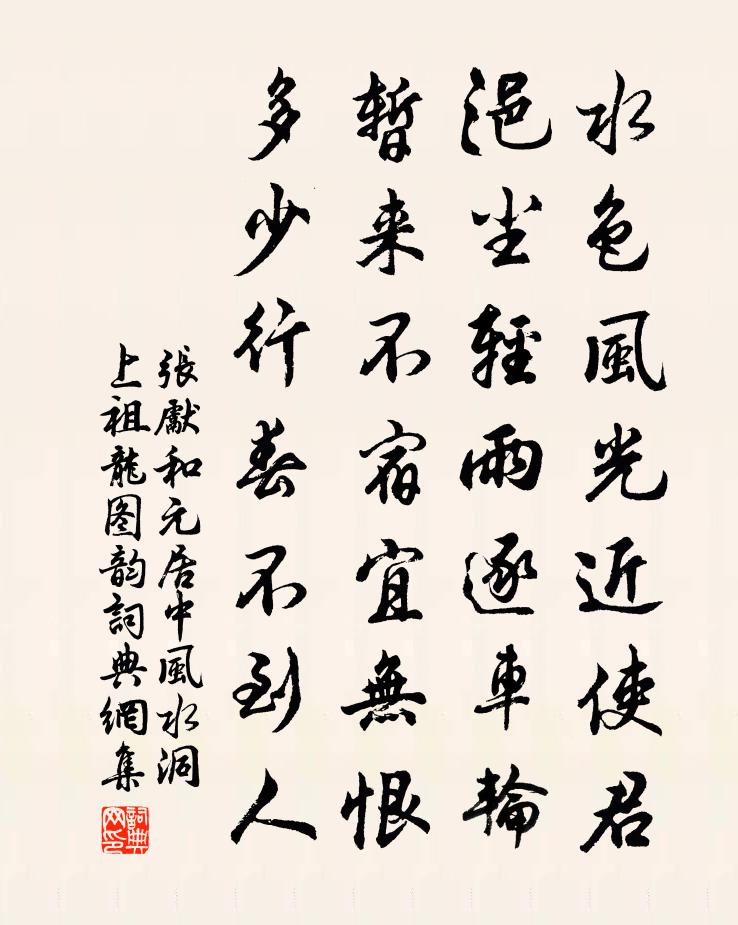 水色風光近使君
浥尘輕雨逐車輪
暫来不宿宜無恨
多少行春不到人
張獻和元居中風水洞
上祖龍图韵詞典網集
詞典
网印